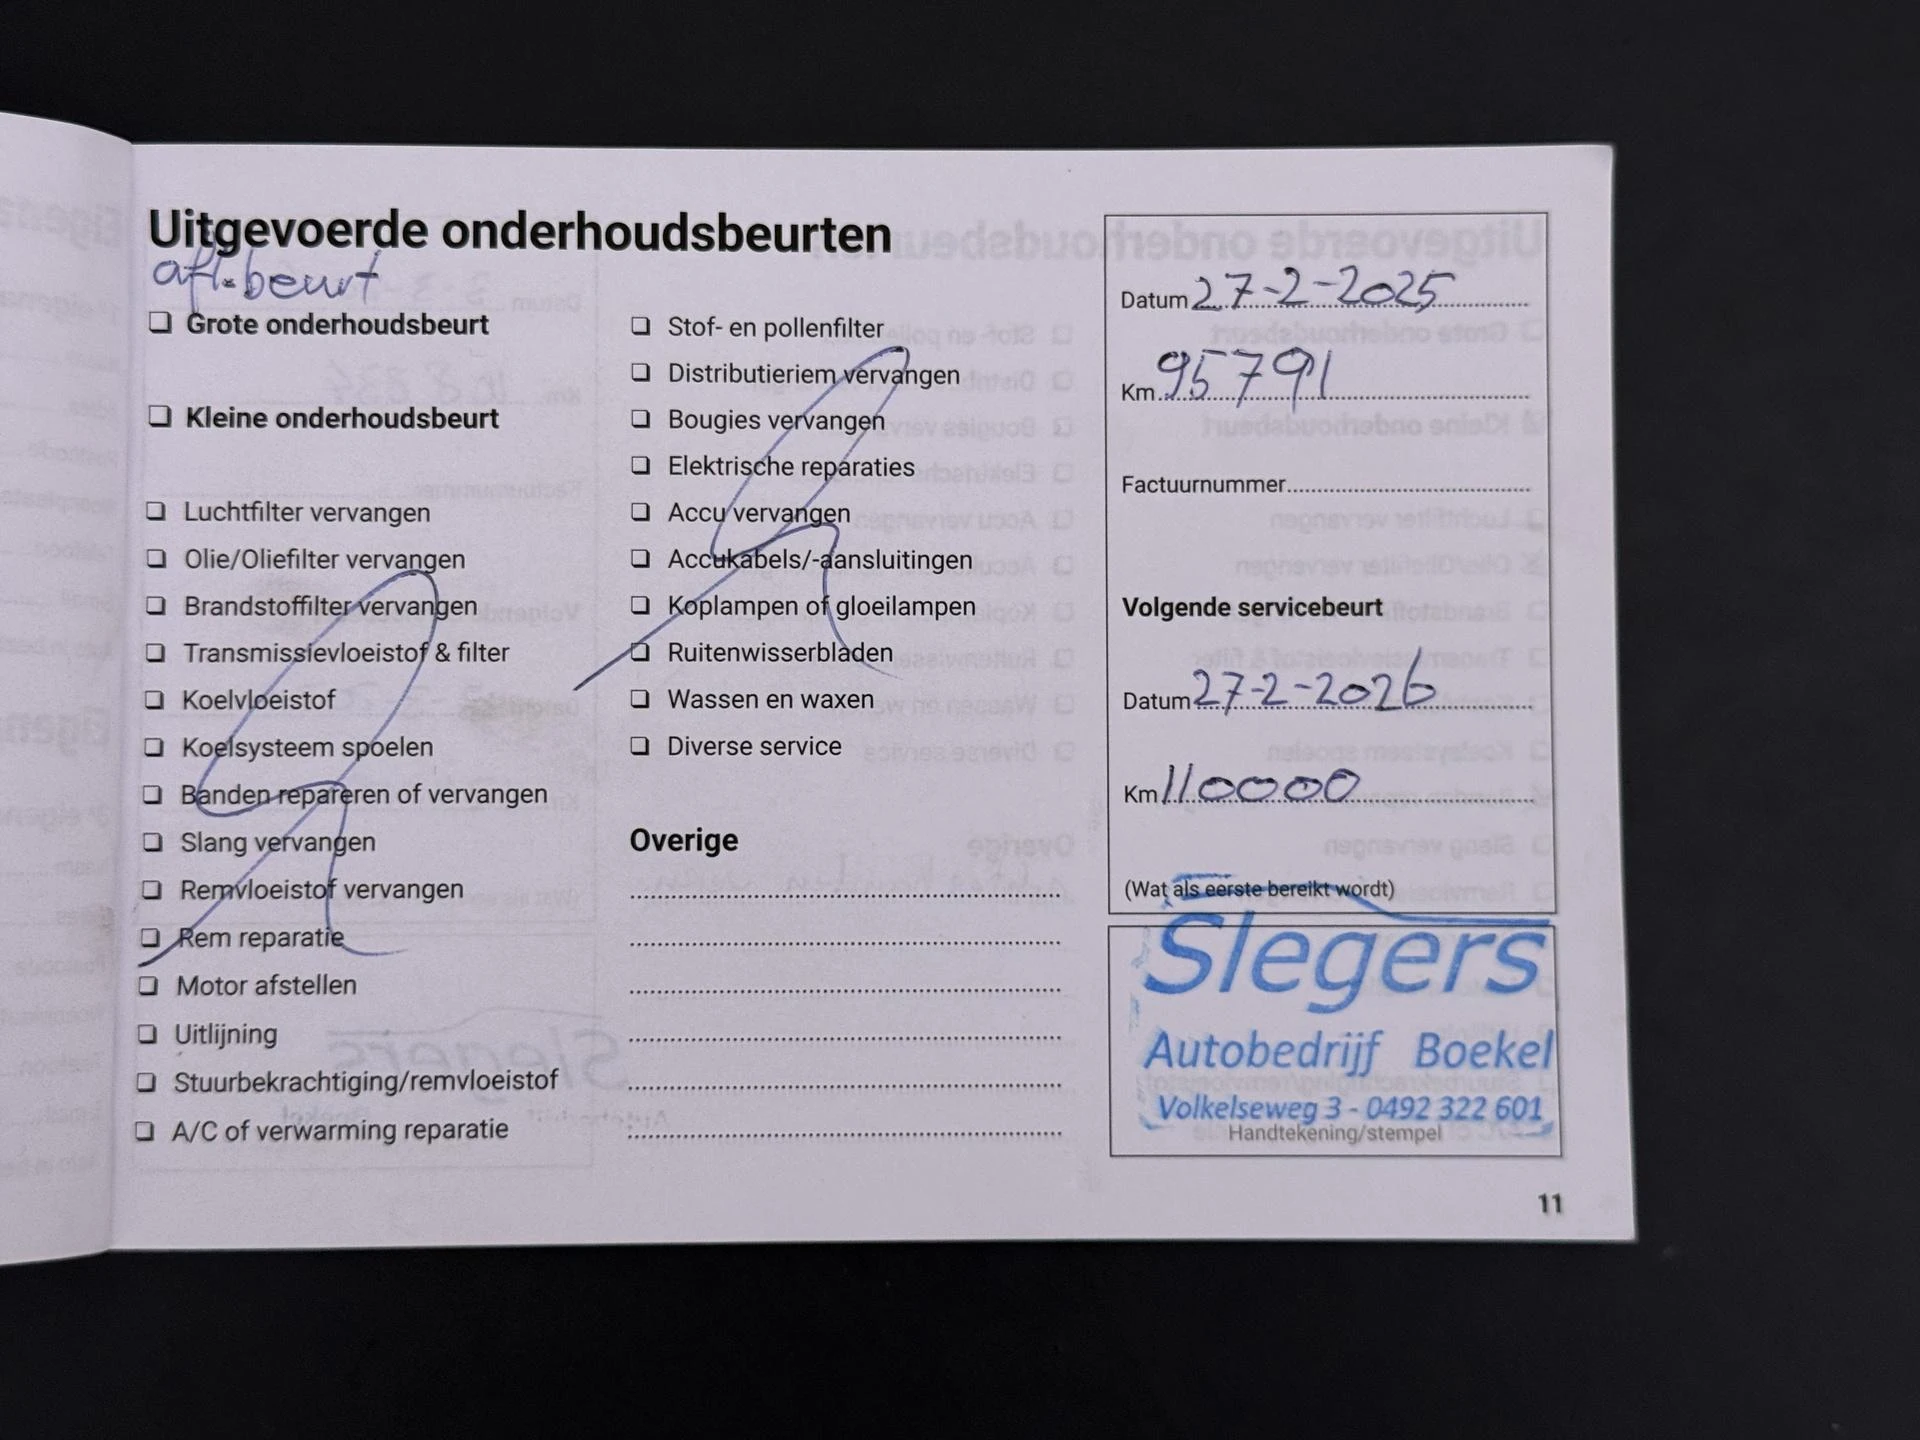 Uitgevoerde onderhoudsbeurten
afl.beurt
Grote onderhoudsbeurt
Kleine onderhoudsbeurt
Luchtfilter vervangen
Olie/Oliefilter vervangen
Brandstoffilter vervangen
Transmissievloeistof & filter
Koelvloeistof
Koelsysteem spoelen
Banden repareren of vervangen
Slang vervangen
Remvloeistof vervangen
Rem reparatie
Motor afstellen
Uitlijning
Stuurbekrachtiging/remvloeistof
A/C of verwarming reparatie
Stof- en pollenfilter
Distributieriem vervangen
Bougies vervangen
Elektrische reparaties
Accu vervangen
Accukabels/-aansluitingen
Koplampen of gloeilampen
Ruitenwisserbladen
Wassen en waxen
Diverse service
Overige
Datum 27-2-2025
Km 95791
Factuurnummer
Volgende servicebeurt
Datum 27-2-2026
Km 110000
(Wat als eerste bereikt wordt)
Slegers
Autobedrijf Boekel
Volkelseweg 3 - 0492 322 601
Handtekening/stempel
11